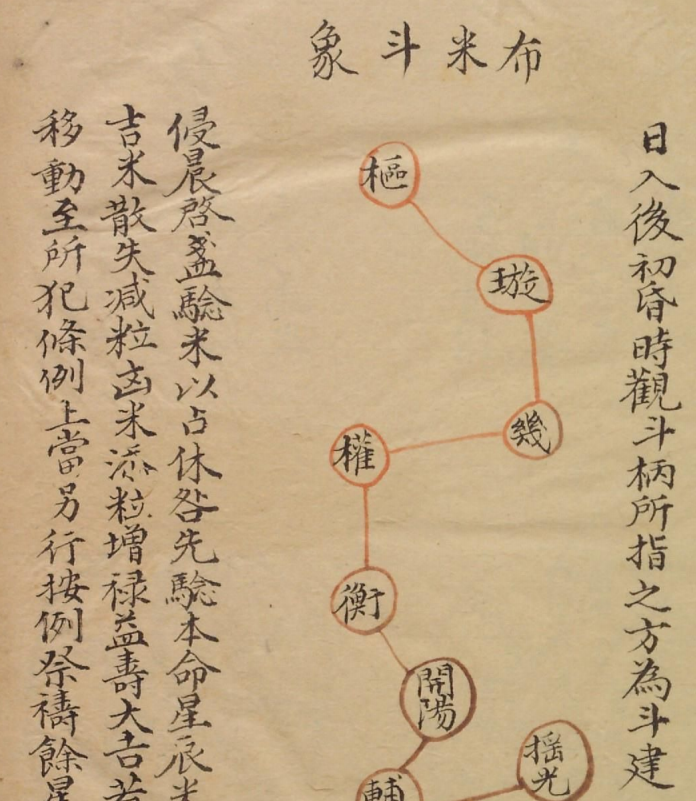 布米斗象
日入後初昏時觀斗柄所指之方為斗建
樞
璇
幾
權
衡
開陽
輔
揺光
侵晨啓盏騐米以占休咎先騐本命星辰米
吉米散失减粒凶米添粒增禄益壽大吉若
移動至所犯條例上當另行按例祭禱餘星